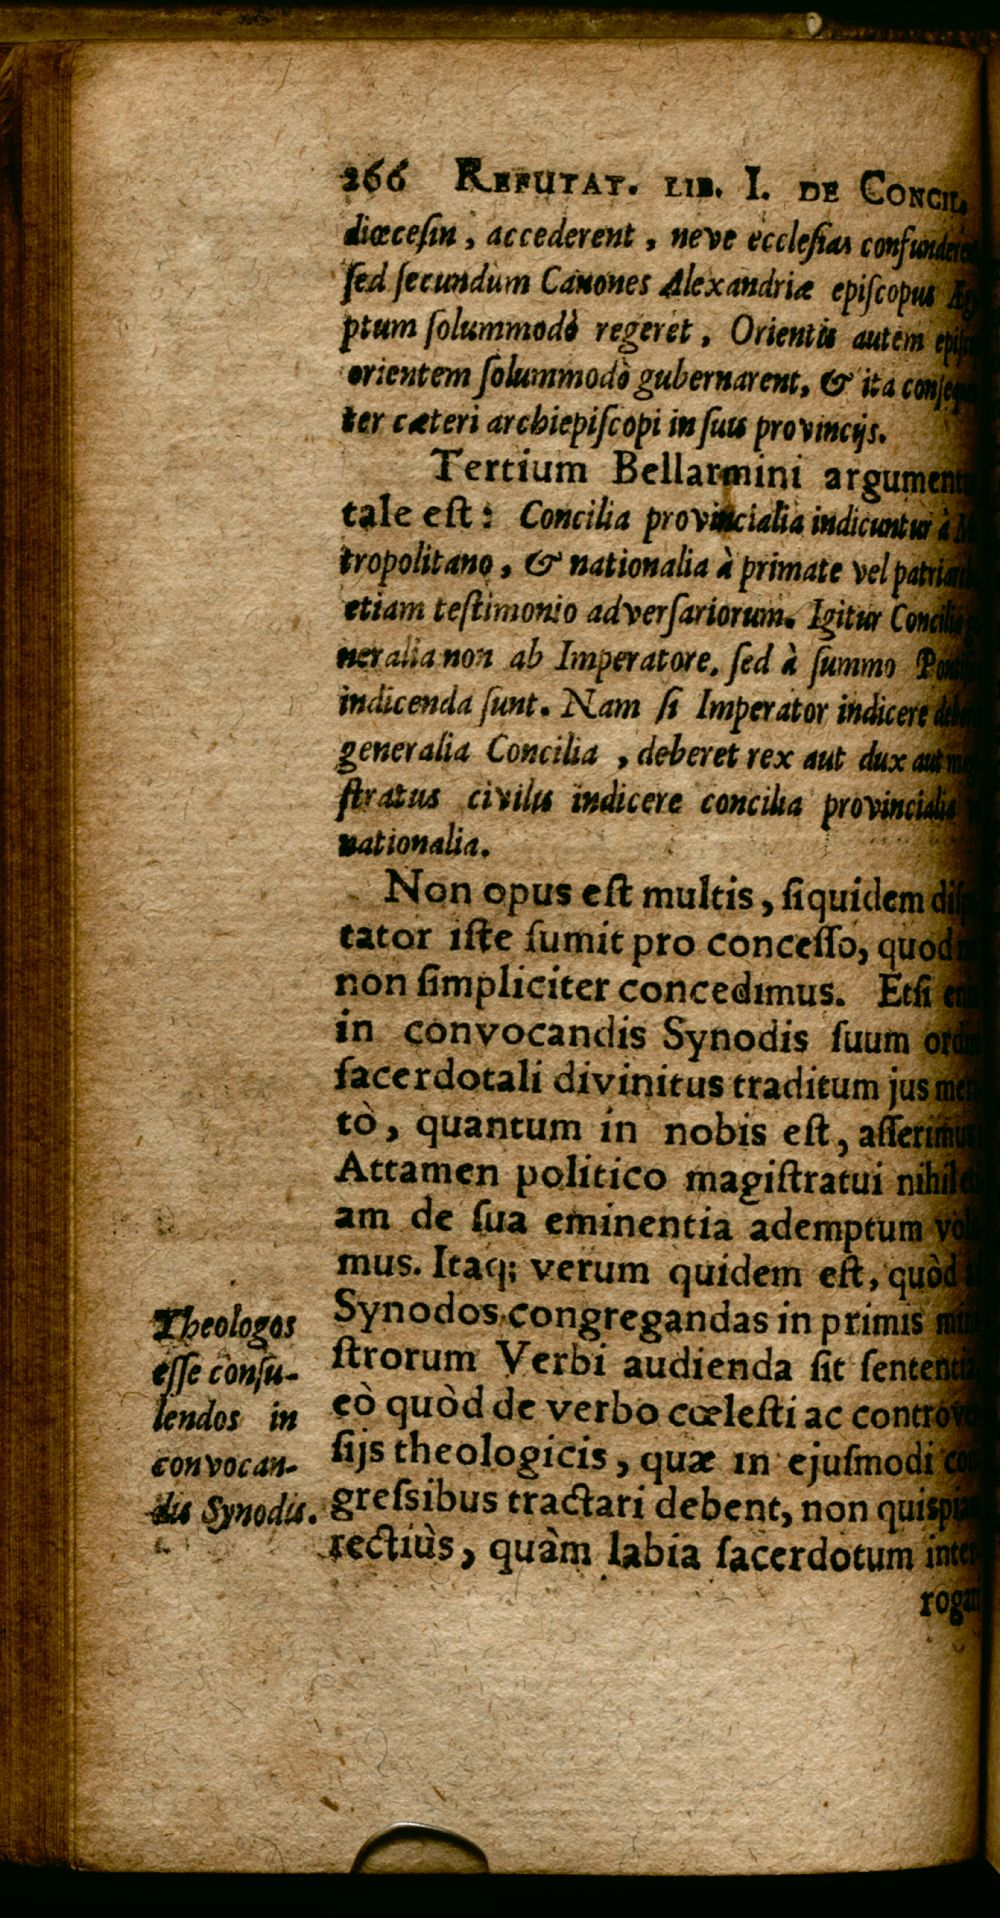 266 REFUTAT. LIB. I. DE CONCIL.
diœceſin, accederent, neve eccleſias confunderent
ſed ſecundum Canones Alexandriæ epiſcopus
ptum ſolummodò regeret, Orientis autem
orientem ſolummodò gubernarent, & ita
ter cæteri archiepiſcopi in ſuis provincijs.
Tertium Bellarmini argumentu
tale eſt: Concilia provincialia indicuntur à
tropolitano, & nationalia à primate vel
etiam teſtimonio adverſariorum. Igitur Concilia
neralia non ab Imperatore, ſed à ſummo
indicenda ſunt. Nam ſi Imperator indicere
generalia Concilia, deberet rex aut dux aut
ſtratus civilis indicere concilia provincialia
nationalia.
Non opus eſt multis, ſiquidem
tator iſte ſumit pro conceſſo, quod
non ſimpliciter concedimus. Etſi
in convocandis Synodis ſuum
ſacerdotali divinitus traditum jus
tò, quantum in nobis eſt, aſſerimus
Attamen politico magiſtratui nihil
am de ſua eminentia ademptum
mus. Itaq; verum quidem eſt, quòd
Synodos congregandas in primis
ſtrorum Verbi audienda ſit ſententia
eò quòd de verbo cœleſti ac
ſijs theologicis, quæ in ejuſmodi
greſsibus tractari debent, non
rectiùs, quàm labia ſacerdotum inter-
rogan
Theologos
eſſe conſu-
lendos in
convocan-
dis Synodis.